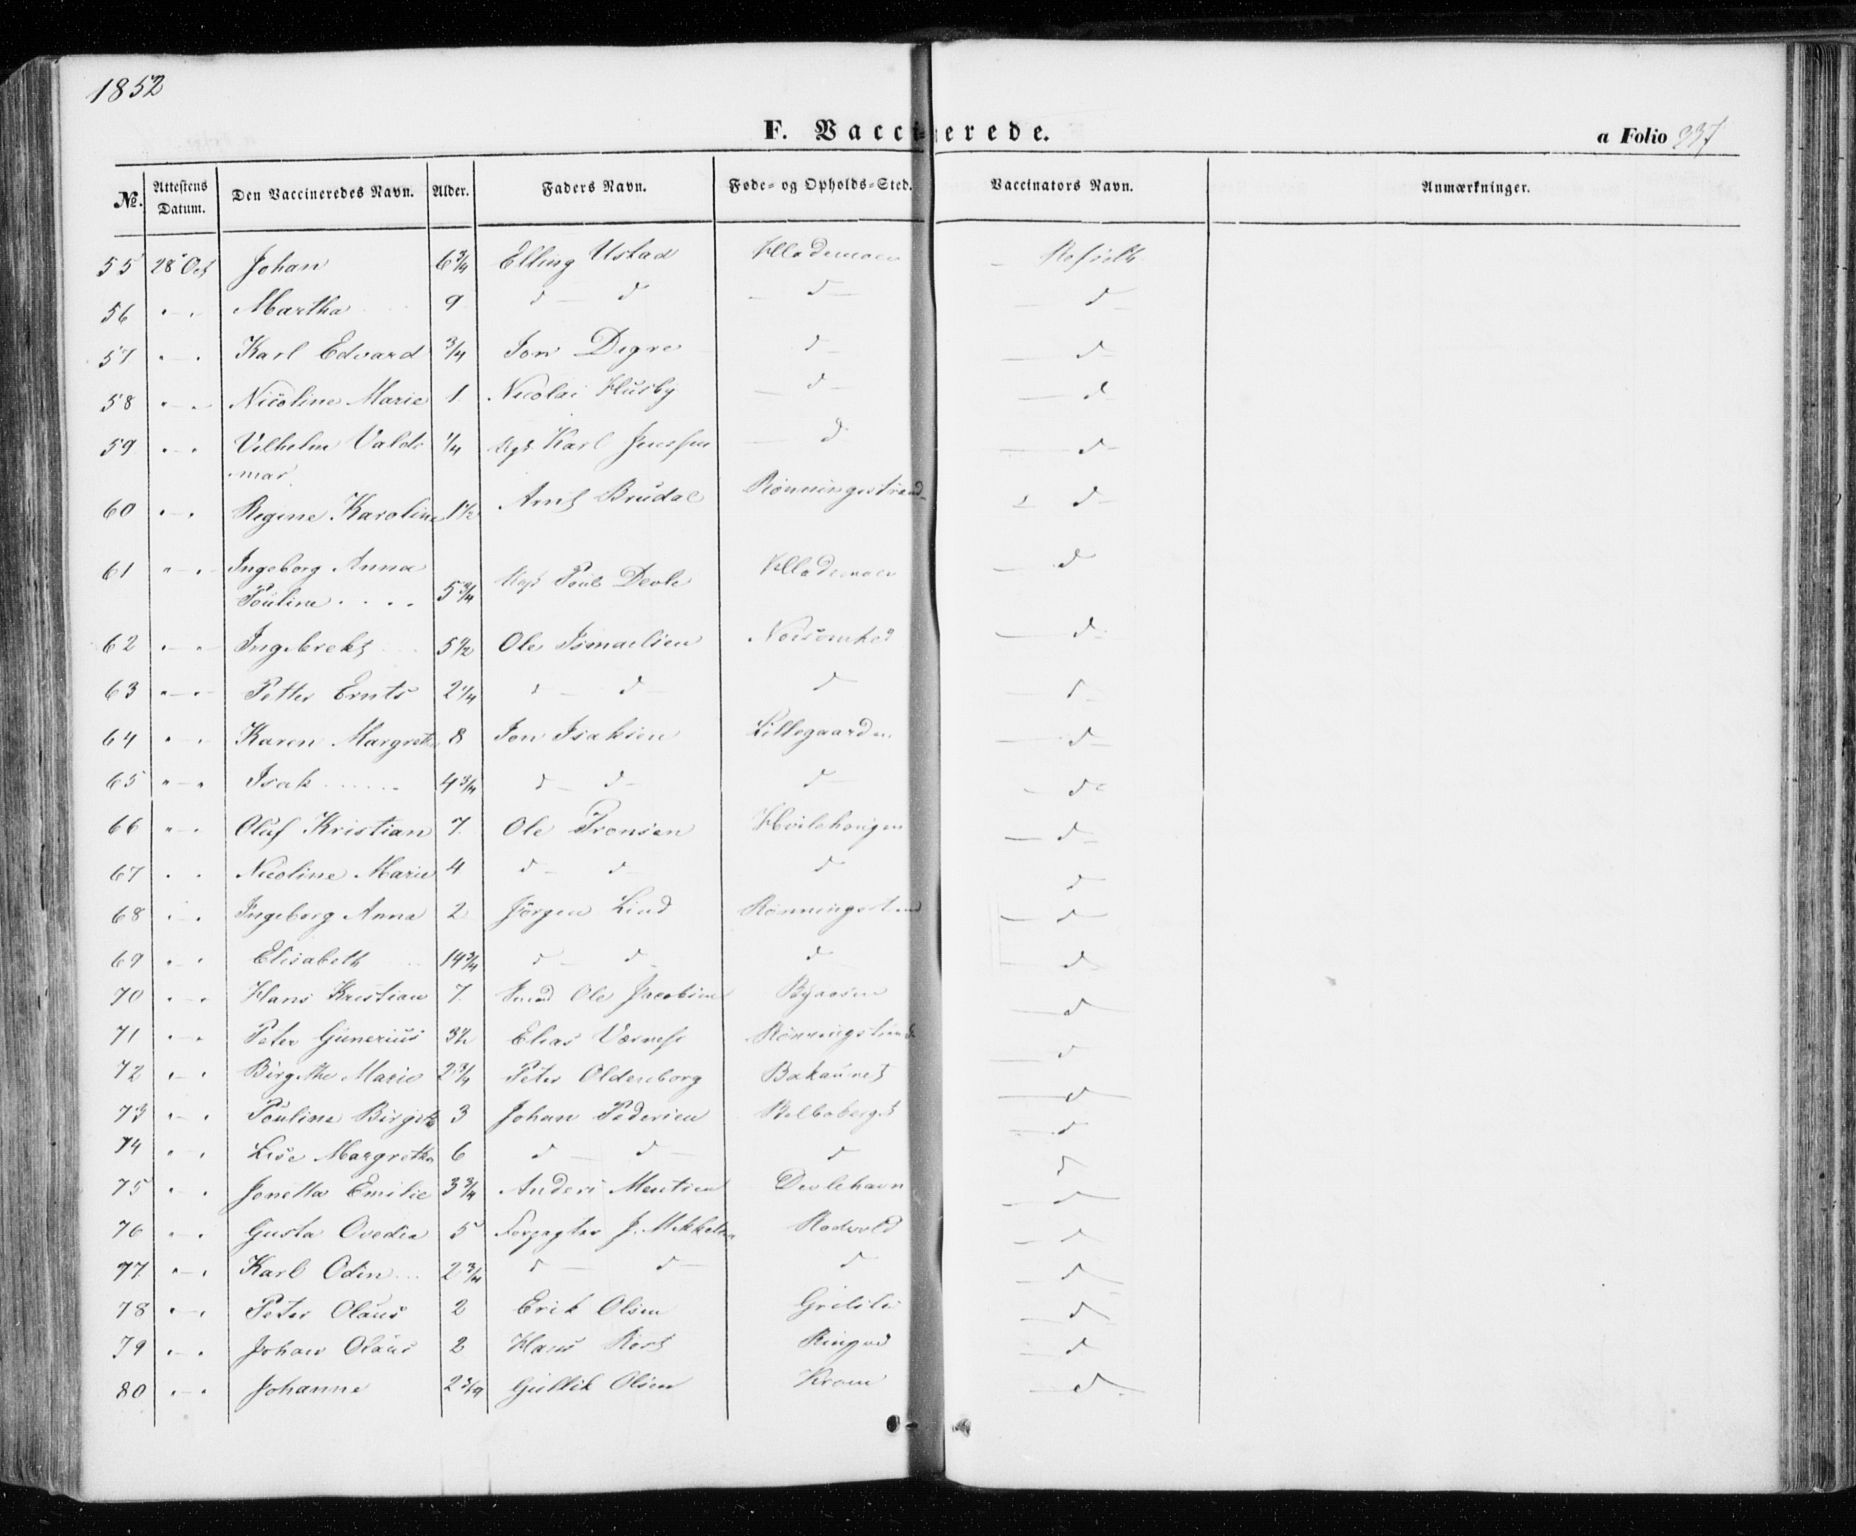 1852
F. Vaccinerede.
a Folio 237
№. Attestens Datum. Den Vaccineredes Navn. Alder. Faders Navn. Føde- og Opholds-Sted. Vaccinators Navn. Anmærkninger.
55 28 Oct Johan 6¾ Elling Ustad Hlademoen
56 " — " Martha 9 d — d — d — — d —
57 " — " Karl Edvard ¾ Jon Digre d — — d —
58 " — " Nicoline Marie 1 Nicolai Husby — d — — d
59 " — " Vilhelm Valde ¼ Karl Jenssen — d — d —
mar
60 " — " Regine Karoline 1½ Arnt Brudal Rønningsstrand d —
61 " — " Ingeborg Anna
Pouline . . . . 5¾ Poul Devle Hlademoen — d
62 " — " Ingebrekt 5½ Ole Ismaelsen — d
63 " — " Petter Ernts 2¼ d — d d — d —
64 " — " Karen Margrete 8 Jon Isaksen Lillegaarden — d —
65 " — " Isak . . . . . . 4¾ d — d — d — — d
66 " — " Oluf Kristian 7 Ole Tronsen — d —
67 " " Nicoline Marie 4 d — d — d d
68 " — " Ingeborg Anna 2 Jörgen Lind Rønningsstrand — d —
69 " — " Elisabeth 14¾ d — d — d — — d —
70 " — " Hans Kristian 7 Ole Jacobsen Byaasen — d
71 " — " Peter Gunerius 3½ Elias Værnes Rønningstrand — d
72 " — " Birgitte Marie 2¾ Peter Oldenborg Bakaunet — d —
73 " — " Pouline Birgite 3 Johan Pedersen — d
74 " — " Lise Margrethe 6 d — d — d d
75 " — " Jonetta Emilie 3¾ Anders Mentsen Devlehavn — d —
76 " — " Gusta Ovedia 5 Forpagter J. Mikkelsen Rodvold — d
77 " — " Karl Odin . . . 2¾ d — d — d — d —
78 " — " Peter Olaus 2 Erik Olsen — d
79 " — " Johan Olaus 2 Hans — d
80 " — " Johanne Gullik Olsen — d —